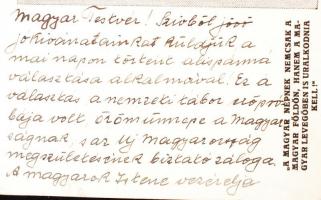 Magyar Testvér! Szívből jövő
jókivánatainkat küldjük a
mai napon történt alispánná
választása alkalmával! Ez a
választás a nemzeti tábor erőpró-
bája volt örömünnepe a Magyar-
ságnak, s az Uj Magyarország
megszületésének biztató záloga.
A magyarok Istene vezérelje
„A MAGYAR NÉPNEK NEMCSAK A
MAGYAR FÖLDÖN, HANEM A MA-
GYAR LEVEGŐBEN IS URALKODNIA
KELL!"